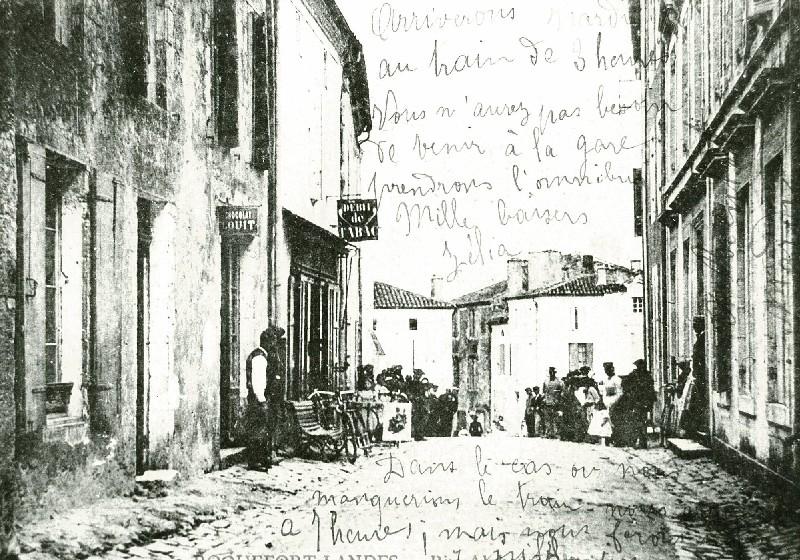 Arriverons mardi
au train de 3 heures
Vous n'aurez pas besoin
de venir à la gare
prendrons l'omnibus
Mille baisers
Zélia
CHOCOLAT
LOUIT
DÉBIT
de
TABAC
Dans le cas ou nous
manquerions le train nous
a 7 heures, mais nous
ROQUEFORT-LANDES